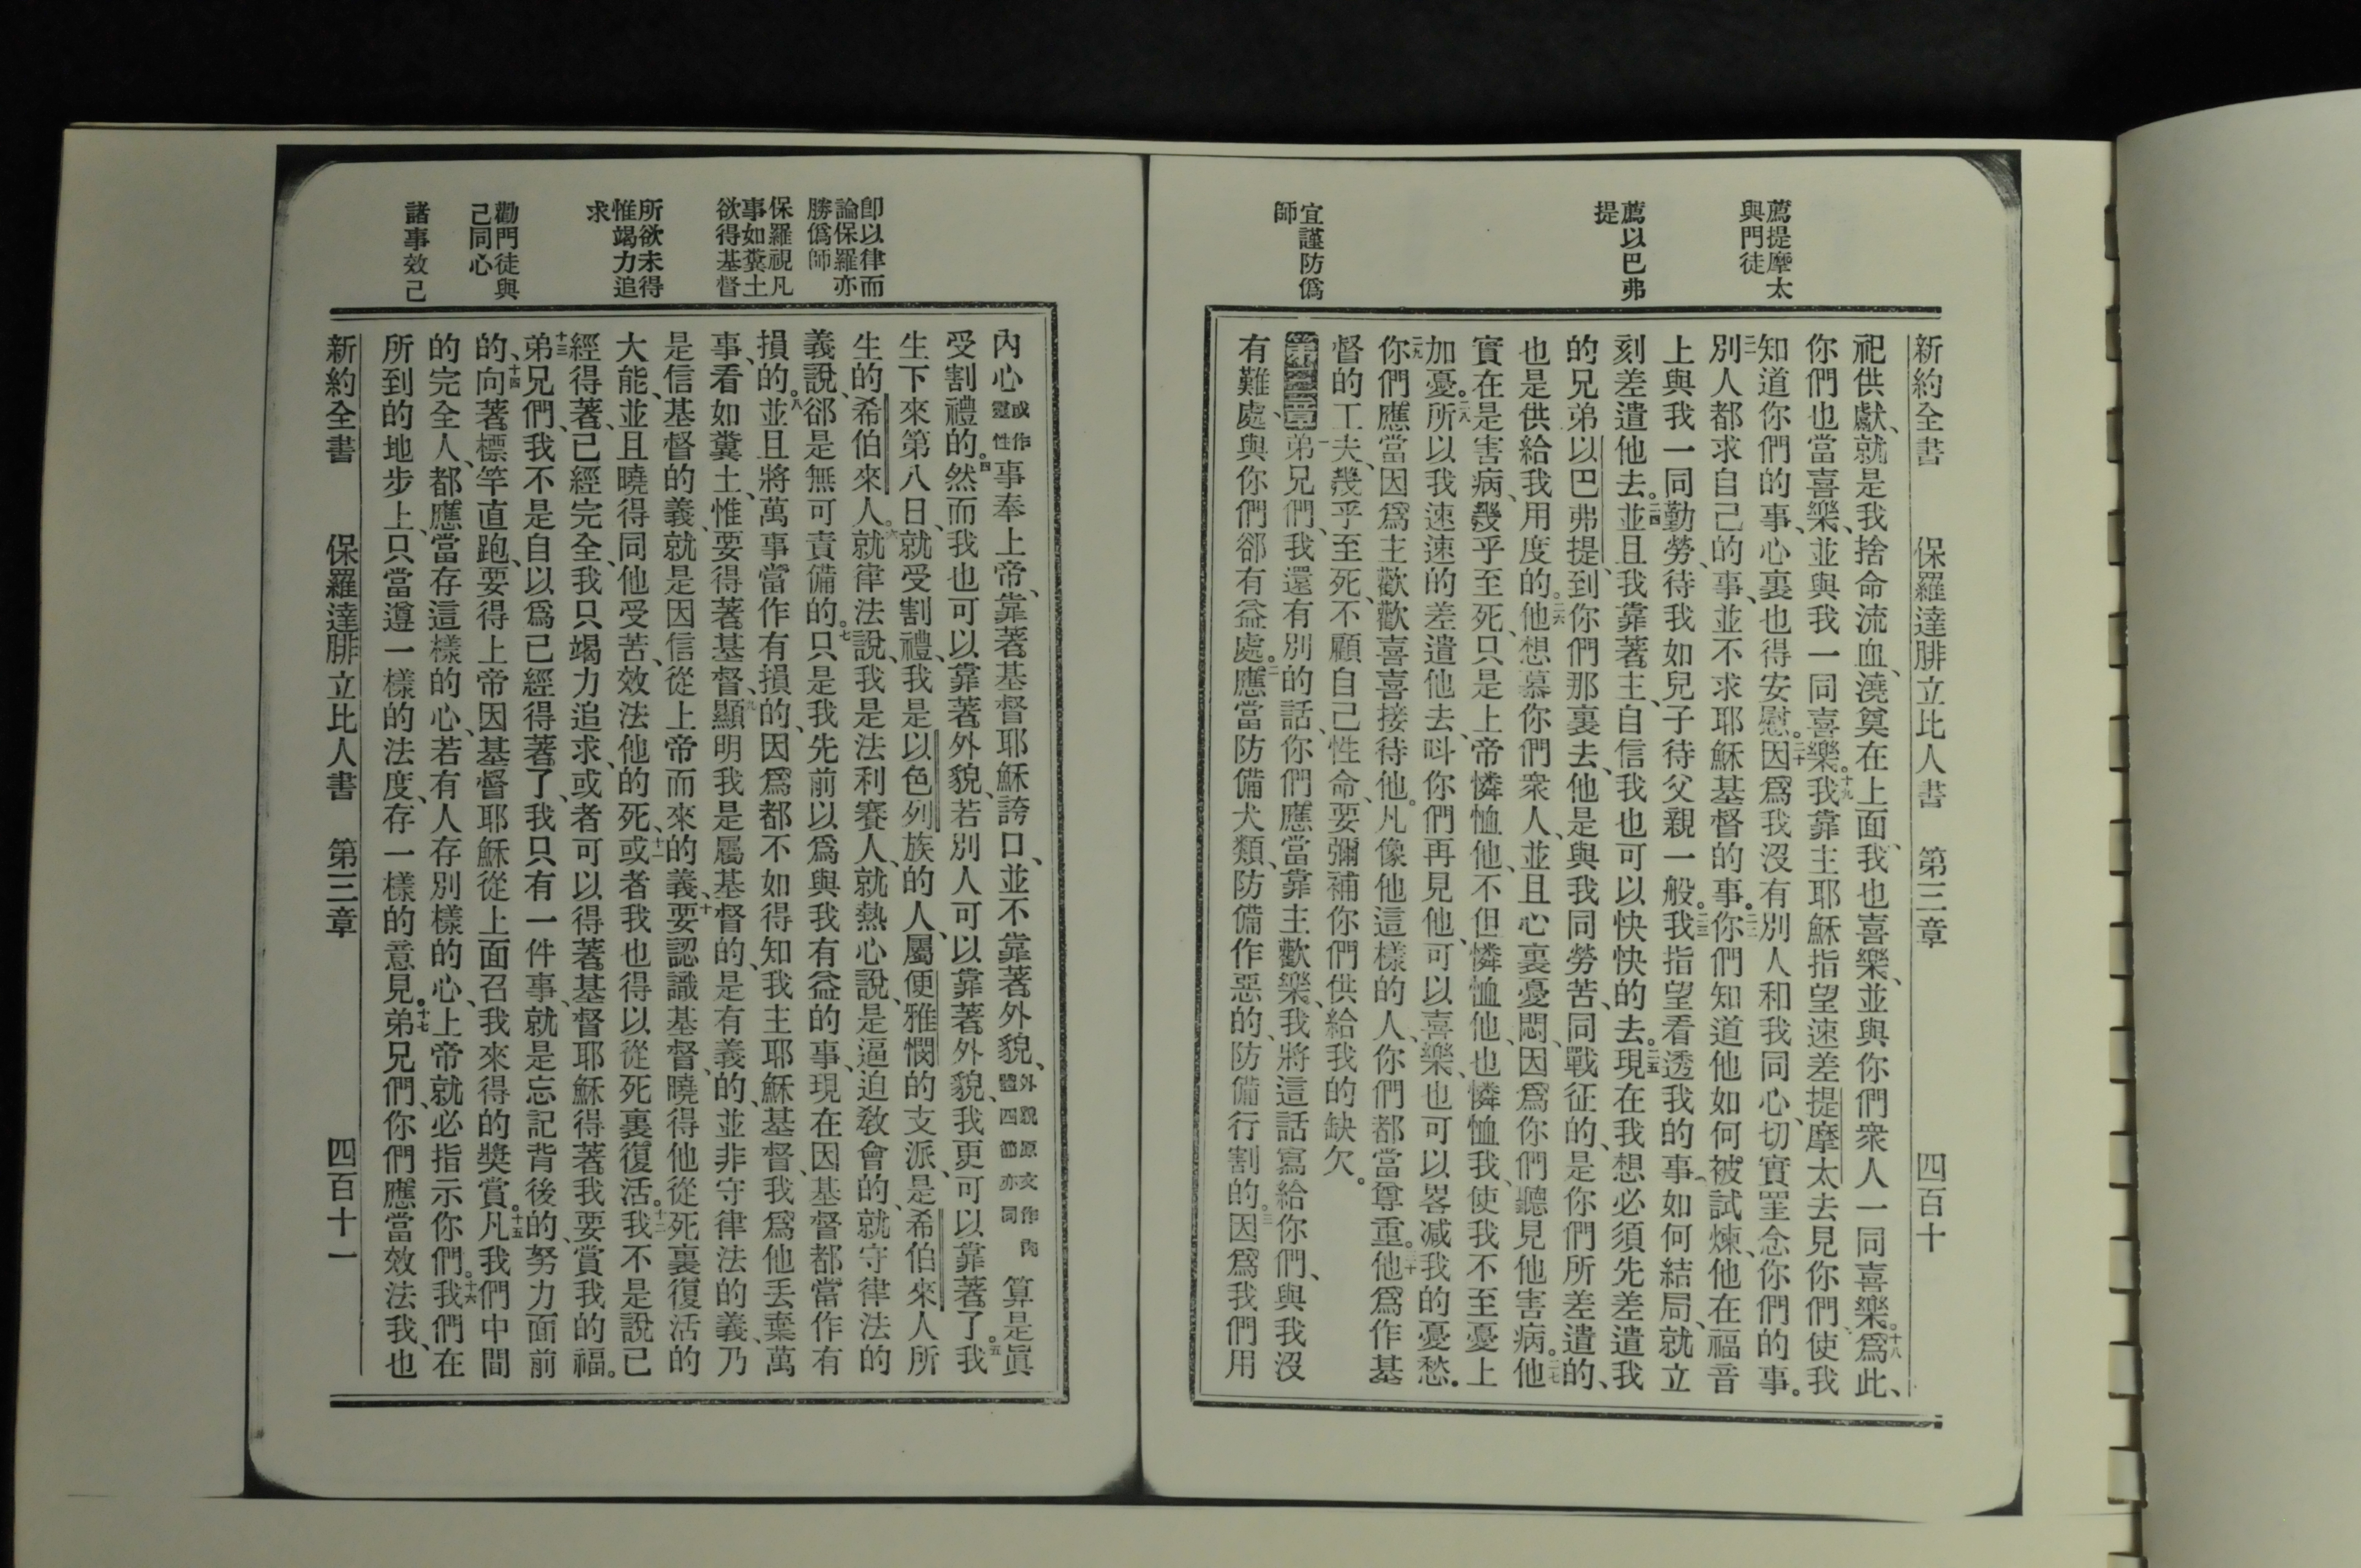 薦提摩太
與門徒
薦以巴弗
提
宜謹防僞
師
新約全書 保羅達腓立比人書 第三章 四百十
祀供獻、就是我捨命流血、澆奠在上面、我也喜樂、並與你們衆人一同喜樂。十八爲此、
你們也當喜樂、並與我一同喜樂。十九我靠主耶穌指望速差提摩太去見你們、使我
知道你們的事、心裏也得安慰。二十因爲我沒有別人和我同心、切實罣念你們的事。
二一別人都求自己的事、並不求耶穌基督的事。二二你們知道他如何被試煉、他在福音
上與我一同勤勞、待我如兒子待父親一般。二三我指望看透我的事如何結局、就立
刻差遣他去。二四並且我靠著主、自信我也可以快快的去。二五現在我想必須先差遣我
的兄弟以巴弗提、到你們那裏去、他是與我同勞苦、同戰征的、是你們所差遣的、
也是供給我用度的。二六他想慕你們衆人、並且心裏憂悶、因爲你們聽見他害病。二七他
實在是害病、幾乎至死、只是上帝憐恤他、不但憐恤他、也憐恤我、使我不至憂上
加憂。二八所以我速速的差遣他去、呌你們再見他、可以喜樂、也可以畧减我的憂愁。
二九你們應當因爲主歡歡喜喜接待他。凡像他這樣的人、你們都當尊重。三十他爲作基
督的工夫、幾乎至死、不顧自己性命、要彌補你們供給我的缺欠。
第三章一弟兄們、我還有別的話、你們應當靠主歡樂、我將這話寫給你們、與我沒
有難處、與你們郤有益處。二應當防備犬類、防備作惡的、防備行割的。三因爲我們用
卽以律而
論保羅亦
勝僞師
保羅視凡
事如糞土
欲得基督
所欲未得
惟竭力追
求
勸門徒與
己同心
諸事效己
內心或作靈性事奉上帝、靠著基督耶穌誇口、並不靠著外貌、外貌原文作肉體四節亦同算是眞
受割禮的。四然而我也可以靠著外貌、若別人可以靠著外貌、我更可以靠著了。五我
生下來第八日、就受割禮、我是以色列族的人、屬便雅憫的支派、是希伯來人所
生的希伯來人。六就律法說、我是法利賽人、就熱心說、是逼迫敎會的、就守律法的
義說、郤是無可責備的。七只是我先前以爲與我有益的事、現在因基督都當作有
損的。八並且將萬事當作有損的、因爲都不如得知我主耶穌基督、我爲他丟棄萬
事、看如糞土、惟要得著基督、九顯明我是屬基督的、是有義的、並非守律法的義、乃
是信基督的義、就是因信從上帝而來的義、十要認識基督、曉得他從死裏復活的
大能、並且曉得同他受苦、效法他的死、十一或者我也得以從死裏復活。十二我不是說已
經得著、已經完全、我只竭力追求、或者可以得著基督耶穌得著我要賞我的福。
十三弟兄們、我不是自以爲已經得著了、我只有一件事、就是忘記背後的、努力面前
的、十四向著標竿直跑、要得上帝因基督耶穌從上面召我來得的獎賞。十五凡我們中間
的完全人、都應當存這樣的心、若有人存別樣的心、上帝就必指示你們。十六我們在
所到的地步上、只當遵一樣的法度、存一樣的意見。十七弟兄們、你們應當效法我、也
新約全書 保羅達腓立比人書 第三章 四百十一